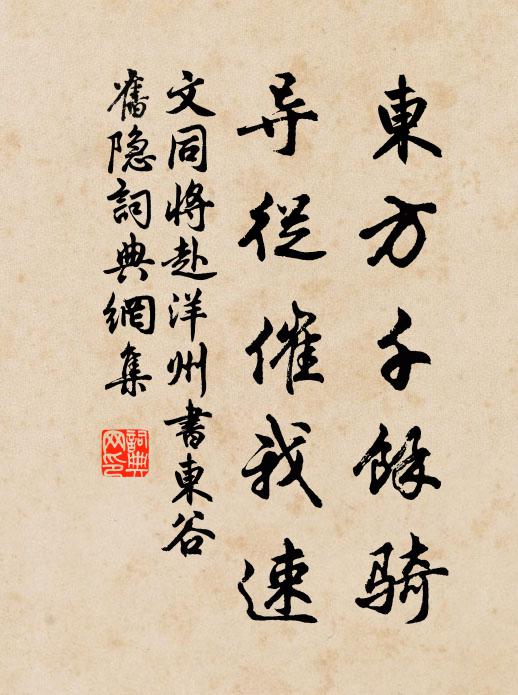 東方千餘骑
导從催我速
文同将赴洋州書東谷
舊隐詞典網集
詞典网印